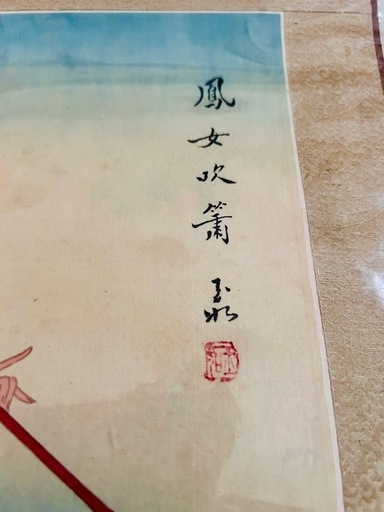 鳳女吹簫